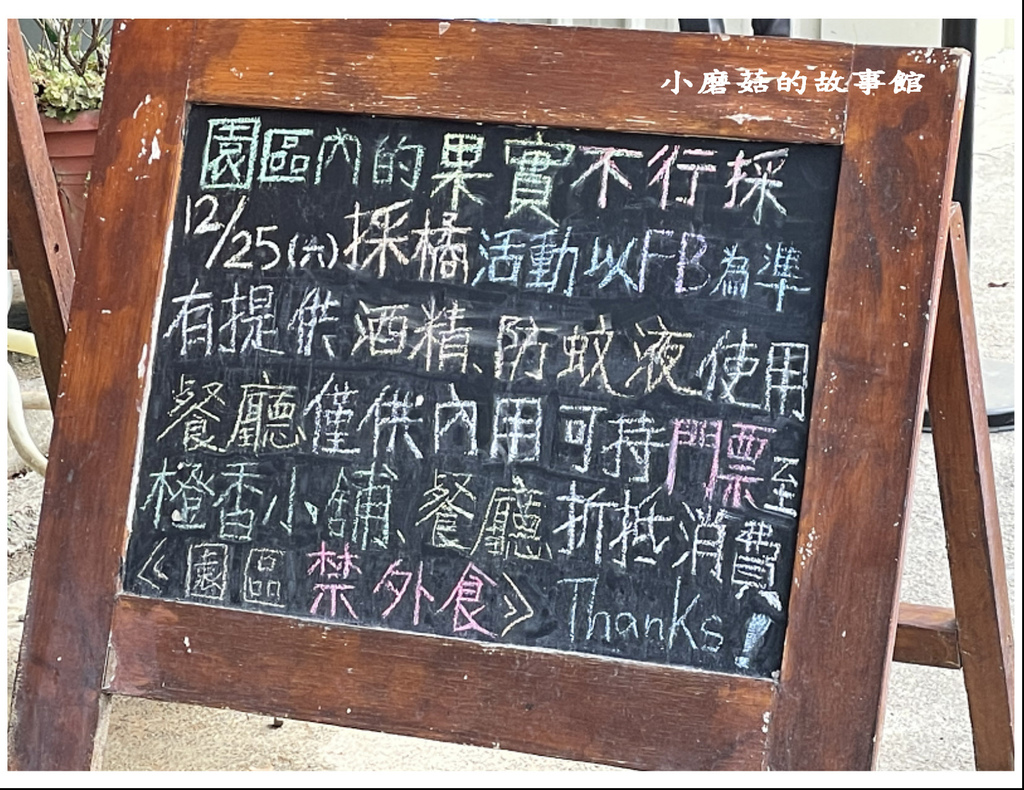 小磨菇的故事館
園區內的果實不行採
12/25(六)採橘活動以FB為準
有提供酒精、防蚊液使用
餐廳僅供內用可持門票至
橙香小舖、餐廳折抵消費
《園區禁外食》Thanks!